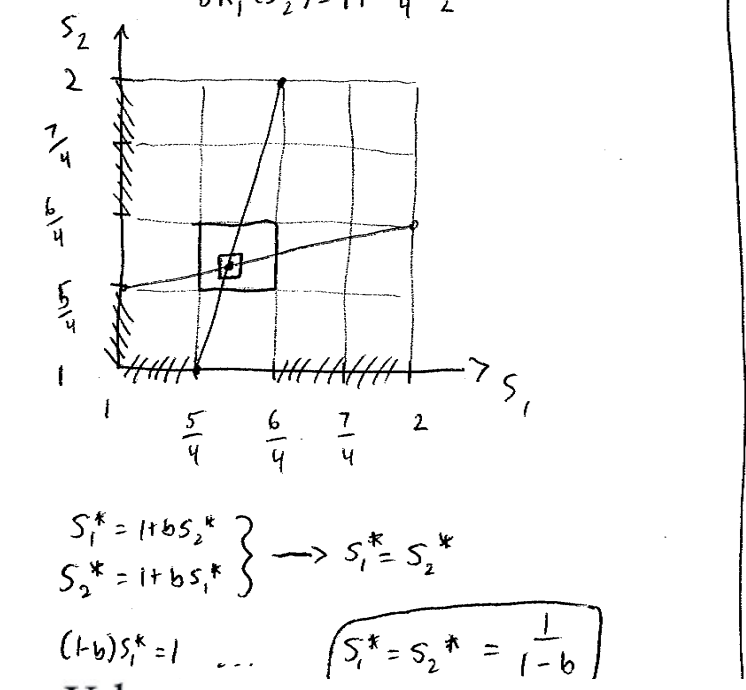 S₂
2
7/4
6/4
5/4
1
S₁
1
5/4
6/4
7/4
2
S₁* = 1+bS₂*
S₂* = 1+bS₁*
} → S₁* = S₂*
(1-b)S₁* = 1 ... S₁* = S₂* = 1/(1-b)